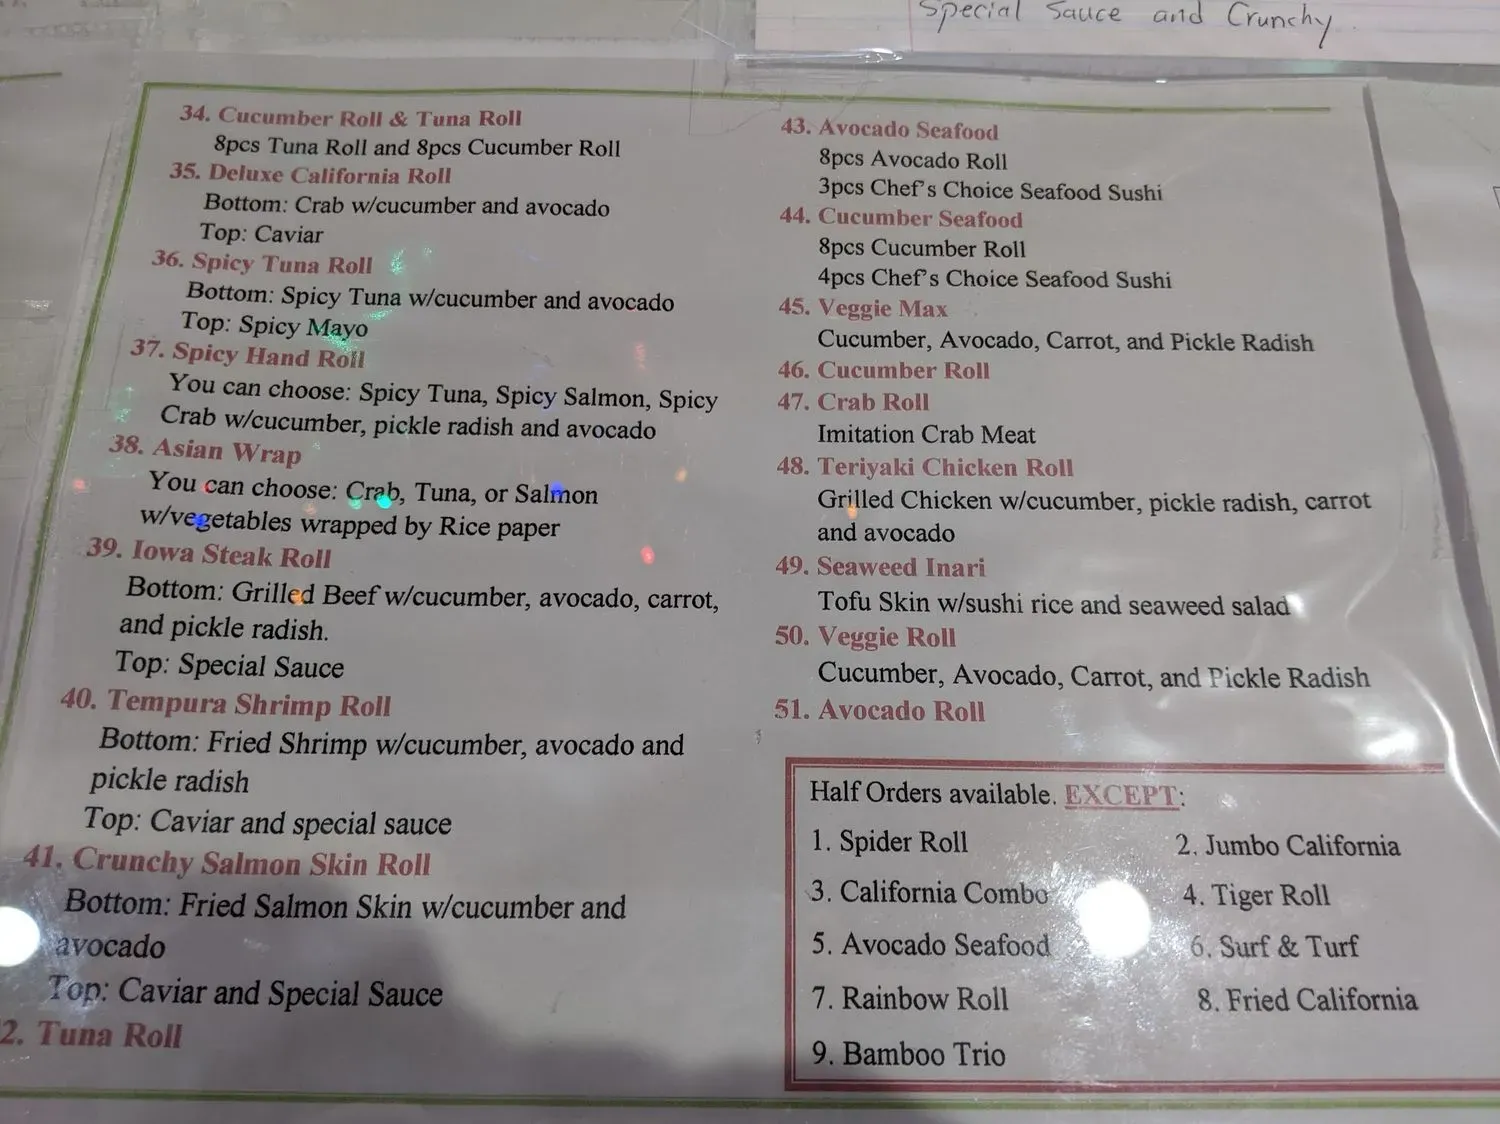 Special Sauce and Crunchy
34. Cucumber Roll & Tuna Roll
8pcs Tuna Roll and 8pcs Cucumber Roll
35. Deluxe California Roll
Bottom: Crab w/cucumber and avocado
Top: Caviar
36. Spicy Tuna Roll
Bottom: Spicy Tuna w/cucumber and avocado
Top: Spicy Mayo
37. Spicy Hand Roll
You can choose: Spicy Tuna, Spicy Salmon, Spicy
Crab w/cucumber, pickle radish and avocado
38. Asian Wrap
You can choose: Crab, Tuna, or Salmon
w/vegetables wrapped by Rice paper
39. Iowa Steak Roll
Bottom: Grilled Beef w/cucumber, avocado, carrot,
and pickle radish.
Top: Special Sauce
40. Tempura Shrimp Roll
Bottom: Fried Shrimp w/cucumber, avocado and
pickle radish
Top: Caviar and special sauce
41. Crunchy Salmon Skin Roll
Bottom: Fried Salmon Skin w/cucumber and
avocado
Top: Caviar and Special Sauce
2. Tuna Roll
43. Avocado Seafood
8pcs Avocado Roll
3pcs Chef's Choice Seafood Sushi
44. Cucumber Seafood
8pcs Cucumber Roll
4pcs Chef's Choice Seafood Sushi
45. Veggie Max
Cucumber, Avocado, Carrot, and Pickle Radish
46. Cucumber Roll
47. Crab Roll
Imitation Crab Meat
48. Teriyaki Chicken Roll
Grilled Chicken w/cucumber, pickle radish, carrot
and avocado
49. Seaweed Inari
Tofu Skin w/sushi rice and seaweed salad
50. Veggie Roll
Cucumber, Avocado, Carrot, and Pickle Radish
51. Avocado Roll
Half Orders available. EXCEPT:
1. Spider Roll
2. Jumbo California
3. California Combo
4. Tiger Roll
5. Avocado Seafood
6. Surf & Turf
7. Rainbow Roll
8. Fried California
9. Bamboo Trio